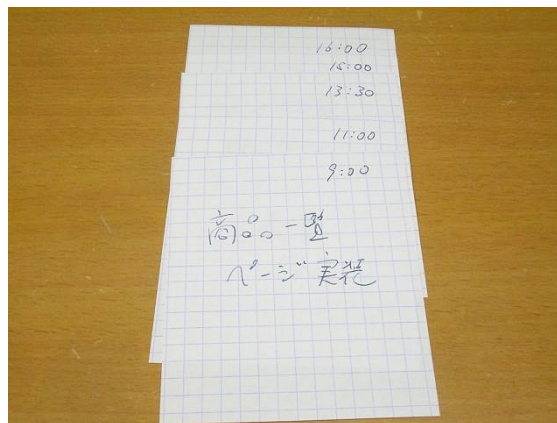 16:00
15:00
13:30
11:00
9:00
商品一覧
ページ実装